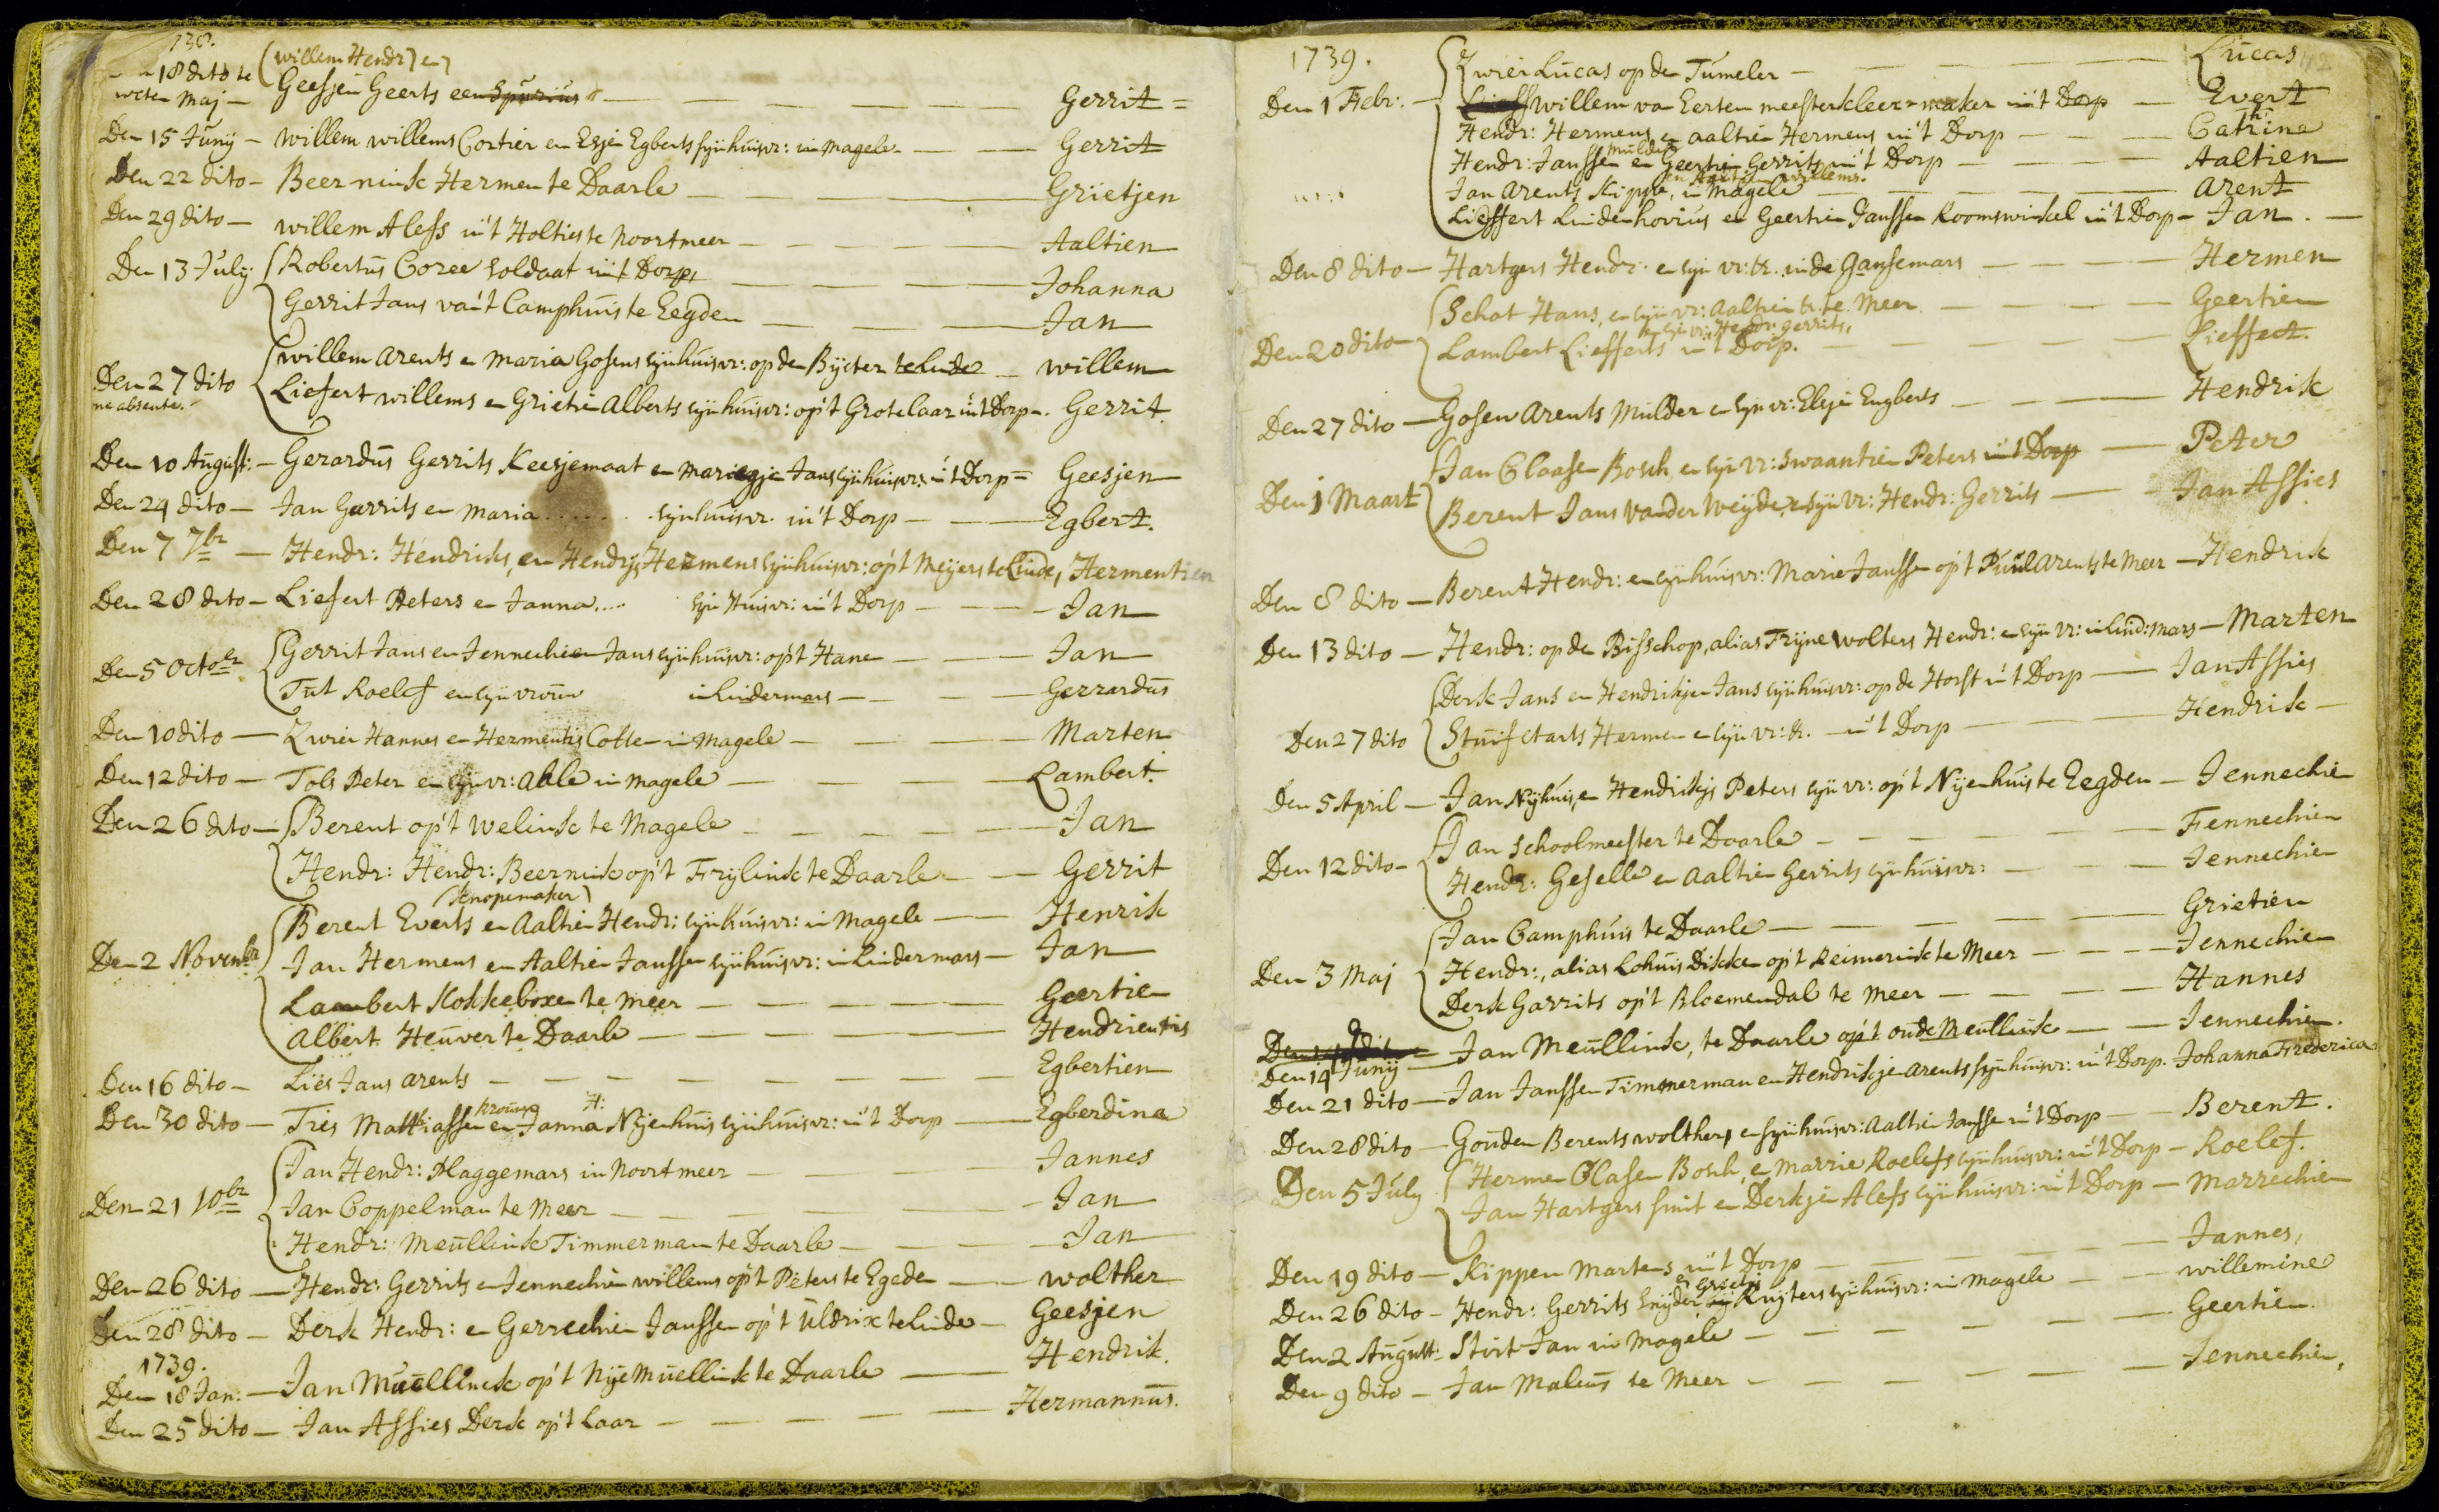 738.
(willem Hendr) en
18 dito te Geesjen Geerts een Spurius — Gerrit =
Maj —
Den 15 Junij — Willem willems Cortier en Esje Egberts sijn huisvr: in Magele — Gerrit
Den 22 dito — Beernink Hermen te Daarle — Grietjen
Den 29 dito — willem Alefs in't Holtieste Noortmeer — Aaltien
Den 13 July { Robertus Coree soldaat in't Dorp, — Johanna
Gerrit Jans van't Camphuis te Eegden — Jan
Den 27 dito { willem Arents en Maria Gosens sijn huisvr: op den Bijcter te Linde — willem
me absente. Liefert willems en Grietie Alberts sijn huisvr: op't Grotelaar in't Dorp — Gerrit.
Den 10 August: — Gerardus Gerrits Keesjemaat en Mariegje Jans sijn huisvr: in't Dorp = Geesjen
Den 24 dito — Jan Garrits en Maria ...... sijn huisvr. in't Dorp — Egbert.
Den 7 7br — Hendr: Hendriks, en Hendrijs Hermens sijn huisvr: op't Meijers te Linde, Hermentien
Den 28 dito — Liefert Peters en Janna .... sijn Huisvr: in't Dorp — Jan
Den 5 Octobr { Gerrit Jans en Jennechien Jans sijn huisvr: op't Hane — Jan
Tut Roelef en sijn vrouw in Lindermars — Gerrardus
Den 10 dito — Zwier Hannes en Hermentis Cotte in Magele — Marten
Den 12 dito — Tols Peter en sijn vr: Able in Magele — Lambert.
Den 26 dito — { Berent op't Welink te Magele — Jan
Hendr: Hendr: Beernink op't Frijlink te Daarle — Gerrit
(knopemaker)
Den 2 Novembr { Berent Everts en Aaltien Hendr: sijn huisvr: in Magele — Henrik
Jan Hermens en Aaltien Janssen sijn huisvr: in Lindermars — Jan
Lambert Kokkeboxen te Meer — Geertien
Albert Heuver te Daarle — Hendrientis
Den 16 dito — Lies Jans Arents — Egbertien
Krouwe H:
Den 30 dito — Tries Matthiassen en Janna Nijenhuis sijn huisvr: in't Dorp — Egberdina
Den 21 10br { Jan Hendr: Plaggemars in Noortmeer — Jannes
Jan Coppelman te Meer — Jan
Hendr: Meullink Timmerman te Daarle — Jan
Den 26 dito — Hendr: Gerrits en Jennechien willems op't Peters te Egede — wolther
Den 28 dito — Derk Hendr: en Gerrechien Janssen op't Uldrix te Linde — Geesjen
1739.
Den 18 Jan: — Jan Muellinck op't Nije Muellink te Daarle — Hendrik.
Den 25 dito — Jan Assies Derk op't Laar — Hermannus.
1739.
{ Zwier Lucas op den Tumeler — Lucas
Den 1 Febr: — willem van Eerten meester kleermaker in't Dorp — Evert
Hendr: Hermens en Aaltien Hermens in't Dorp — Catrina
Mulder
Hendr: Janssen en Geertien Gerrits in't Dorp — Aaltien
en Aaltjen willems.
Jan Arents Kippe, in Magele — Arent
Liesffert Lindenhovius en Geertien Janssen Roomswinkel in't Dorp — Jan.
Den 8 dito — Hartgers Hendr. en sijn vr: &. in de Gansemars — Hermen
Den 20 dito { Schot Hans, en sijn vr: Aaltien &. te Meer — Geertien
en sijn vr: Hendr: Gerrits,
Lambert Liefferts in't Dorp. — Lieffert.
Den 27 dito — Gosen Arents Mulder en sijn vr: Elsje Engberts — Hendrik
Den 1 Maart { Jan Claasen Bosch en sijn vr: Swaantien Peters in't Dorp — Peter
Berent Jans van der Weijde, en sijn vr: Hendr: Gerrits — Jan Assies
Den 8 dito — Berent Hendr: en sijn huisvr: Marie Janssen op't Puul Arents te Meer — Hendrik
Den 13 dito — Hendr: op de Bisschop, alias Trijne wolters Hendr: en sijn vr: in Lind:Mars — Marten
Den 27 dito { Derk Jans en Hendrikjen Jans sijn huisvr: op de Horst in't Dorp — Jan Assies
Stuifctarts Hermen en sijn vr: &. — in't Dorp — Hendrik —
Den 5 April — Jan Nijhuis, en Hendrikjs Peters sijn vr: op't Nijenhuis te Eegden — Jennechien
Den 12 dito — { Jan Schoolmeester te Daarle — Fennechien
Hendr: Geselle en Aaltien Gerrits sijn huisvr: — Jennechien
Den 3 Maj { Jan Camphuis te Daarle — Grietien
Hendr:, alias Lohuis Dikken op't Reimerink te Meer — Jennechien
Derk Garrits op't Bloemendal te Meer — Hannes
Den 14 dito
Den 14 Junij — Jan Meullink, te Daarle op't oude Meullink — Jennechien.
Den 21 dito — Jan Janssen Timmerman en Hendrikje Arents sijn huisvr: in't Dorp. Johanna Frederica
Den 28 dito — Gouden Berents wolthers en sijn huisvr: Aaltien Janssen in't Dorp — Berent.
Den 5 July { Hermen Clasen Bosch, en Marrie Roelefs sijn huisvr: in't Dorp — Roelef.
Jan Hartgers smit en Derkjen Alefs sijn huisvr: in't Dorp — Marrechien
Den 19 dito — Kippen Martens in't Dorp — Jannes,
en Grietj
Den 26 dito — Hendr: Gerrits Snijder Ruijters sijn huisvr: in Magele — willemine
Den 2 August: Stvit Jan in Magele — Geertien.
Den 9 dito — Jan Maleus te Meer — Jennechien,